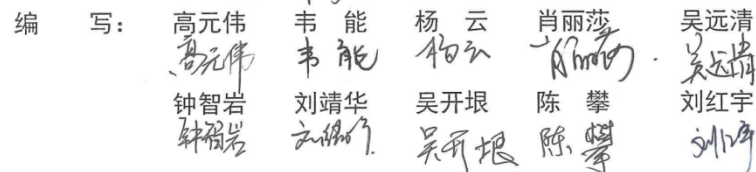 编 写： 高元伟 韦 能 杨 云 肖丽莎 吴远清
高元伟 韦能 杨云 肖丽莎 吴远清
钟智岩 刘靖华 吴开垠 陈 攀 刘红宇
钟智岩 刘靖华 吴开垠 陈攀 刘红宇